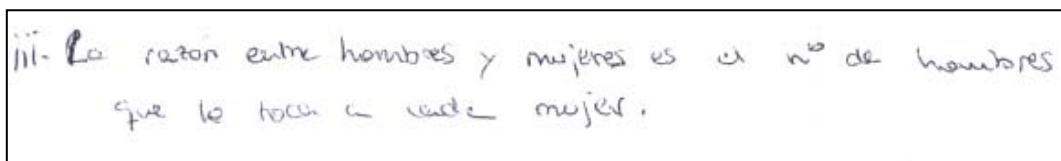 iii- La razón entre hombres y mujeres es el nº de hombres
que le toca a cada mujer.